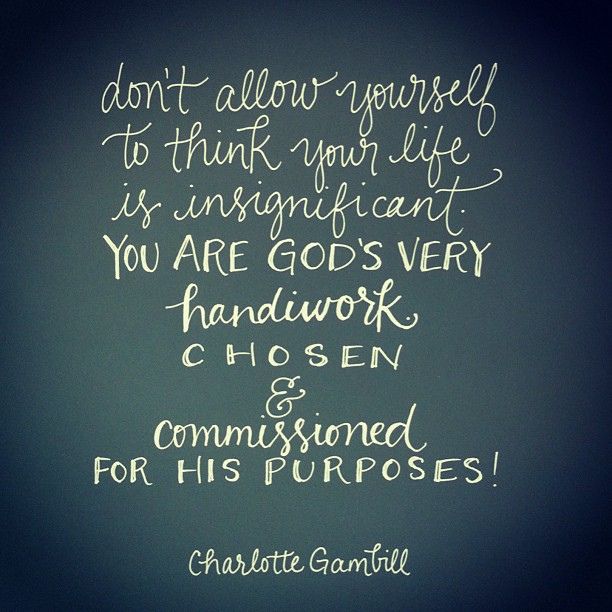 don't allow yourself
to think your life
is insignificant.
YOU ARE GOD'S VERY
handiwork.
CHOSEN
&
commissioned
FOR HIS PURPOSES!
Charlotte Gambill